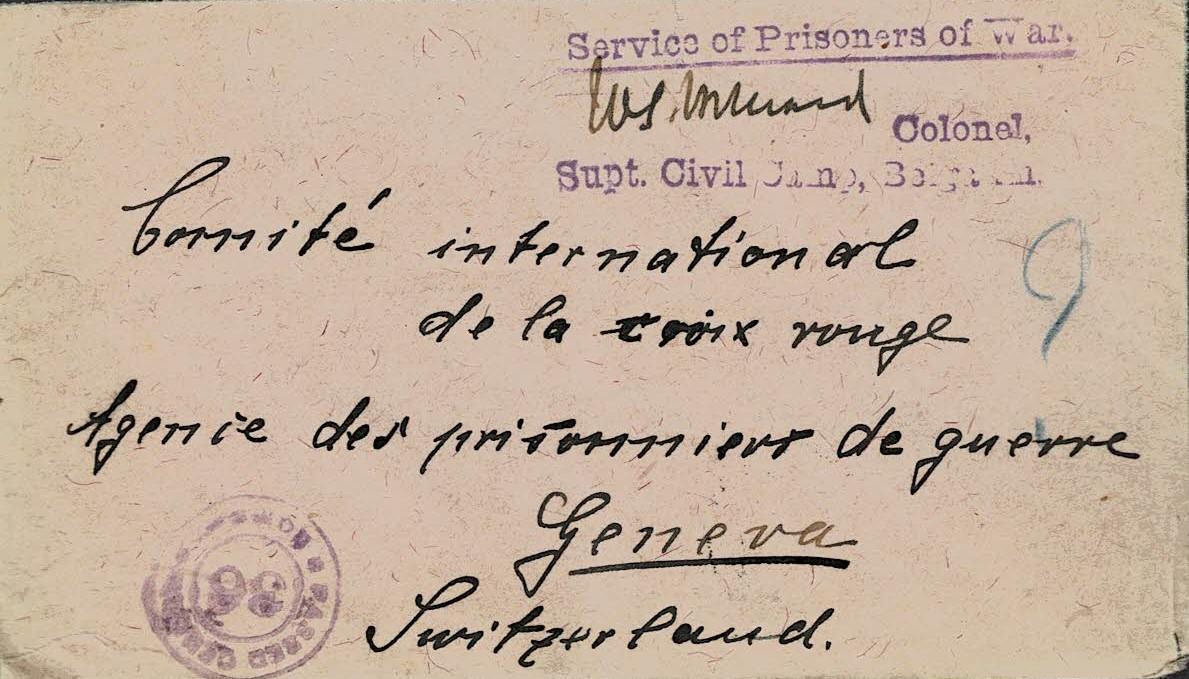 Service of Prisoners of War.
Colonel,
Supt. Civil Camp, Belgaum.
Comité international
de la croix rouge
9
Agence des prisonniers de guerre
Geneva
Switzerland.
PASSED